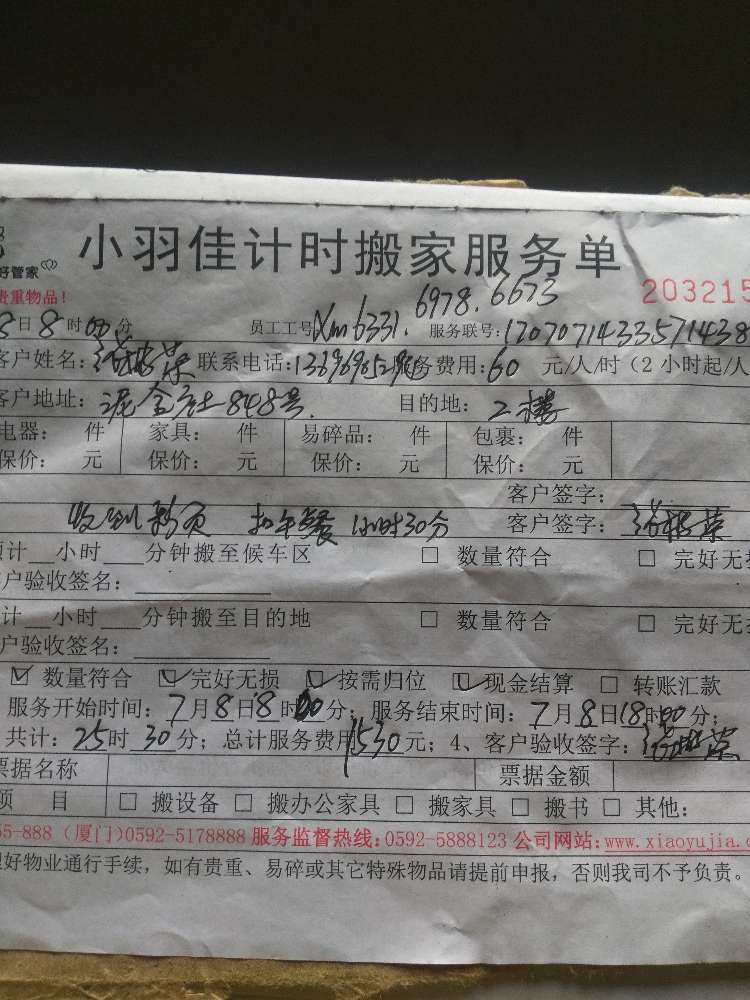 好管家
小羽佳计时搬家服务单
贵重物品!
203215
8日8时00分 员工工号Xm6331.6978.6673 服务联号:17070714335571438
客户姓名: 联系电话: 服务费用:60 元/人/时(2小时起/人
客户地址:泥金社848号 目的地:2楼
电器: 件 家具: 件 易碎品: 件 包裹: 件
保价: 元 保价: 元 保价: 元 保价: 元
客户签字:
收到 扣午餐 1小时30分 客户签字:
预计__小时___分钟搬至候车区 □ 数量符合 □ 完好无损
客户验收签名:
计__小时___分钟搬至目的地 □ 数量符合 □ 完好无损
客户验收签名:
☑ 数量符合 ☑ 完好无损 ☑ 按需归位 ☑ 现金结算 □ 转账汇款
服务开始时间:7月8日8时00分;服务结束时间:7月8日18时00分;
共计:25时30分;总计服务费用1530元;4、客户验收签字:
票据名称 票据金额
项 目 □ 搬设备 □ 搬办公家具 □ 搬家具 □ 搬书 □ 其他:
55-888(厦门)0592-5178888 服务监督热线:0592-5888123 公司网站:www.xiaoyujia.c
理好物业通行手续,如有贵重、易碎或其它特殊物品请提前申报,否则我司不予负责。